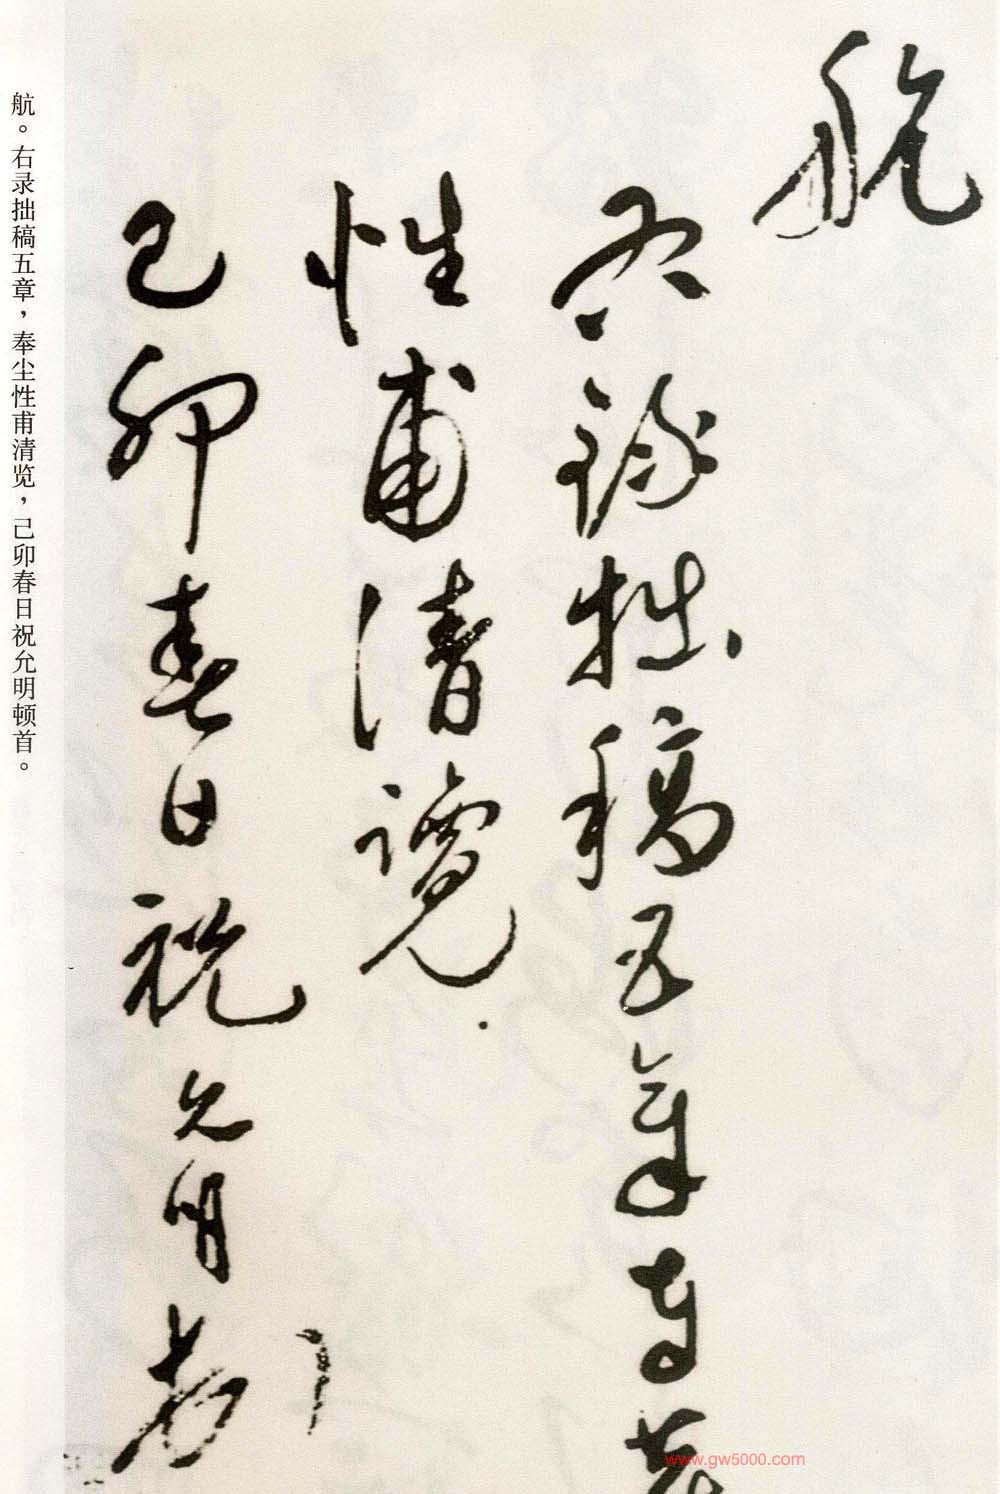 航
右録拙稿五章奉塵
性甫清覽
己卯春日祝允明頓首
航。右录拙稿五章，奉尘性甫清览，己卯春日祝允明顿首。
www.gw5000.com